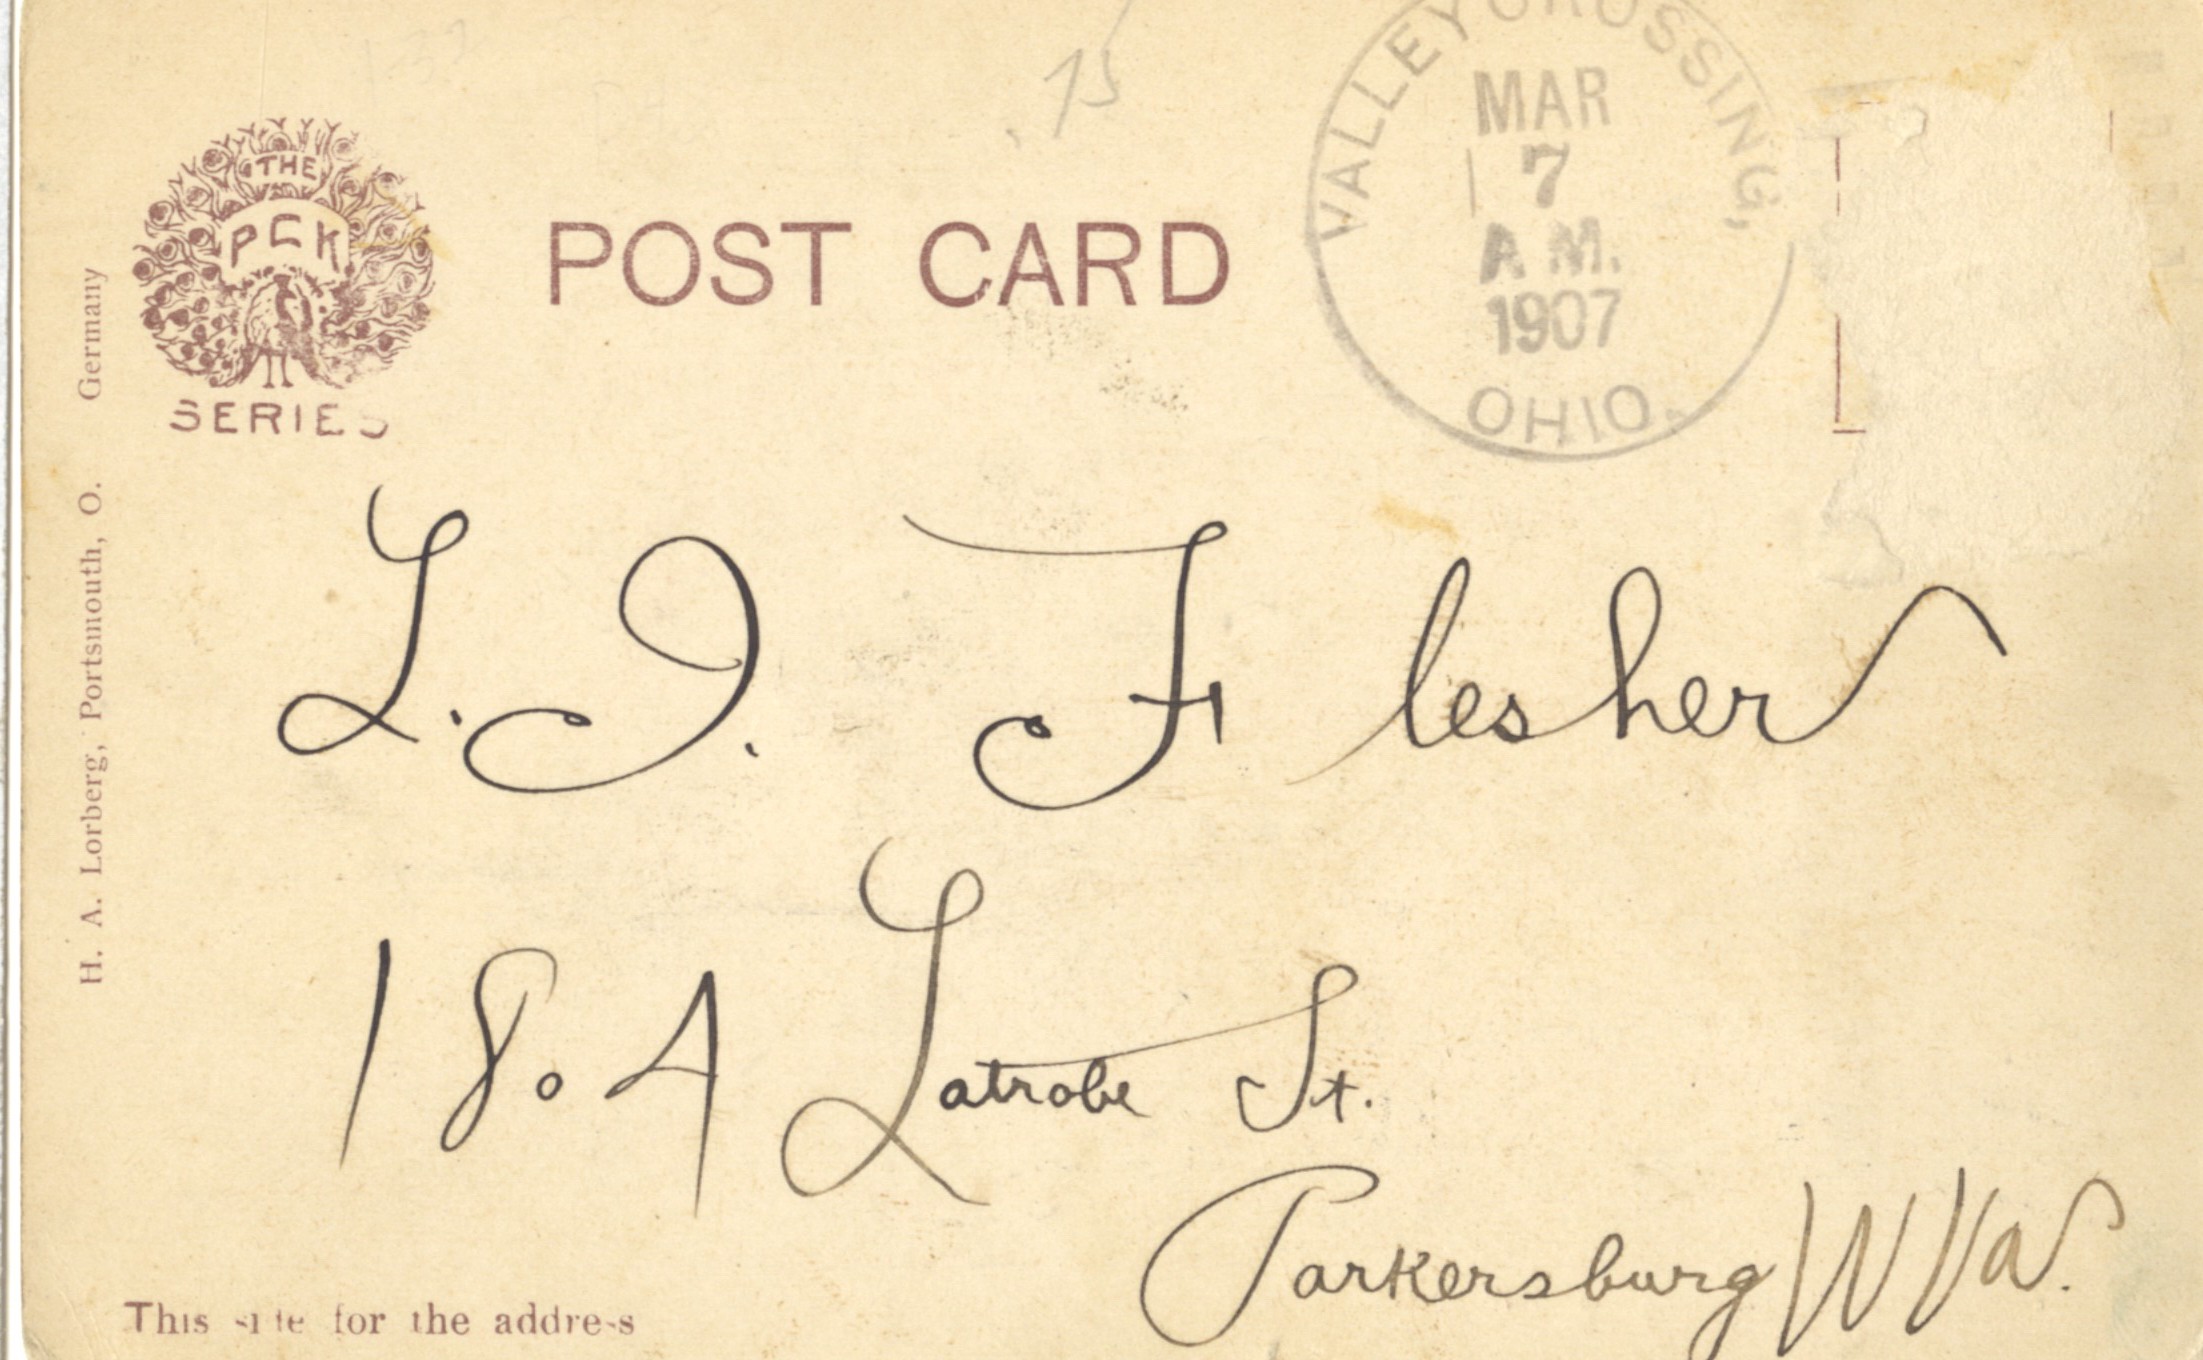 .15
THE
PCK
SERIES
POST CARD
VALLEY CROSSING,
MAR
7
A M.
1907
OHIO.
H. A. Lorberg, Portsmouth, O. Germany
L. I. Flesher
180 A Latrobe St.
Parkersburg W Va.
This side for the address